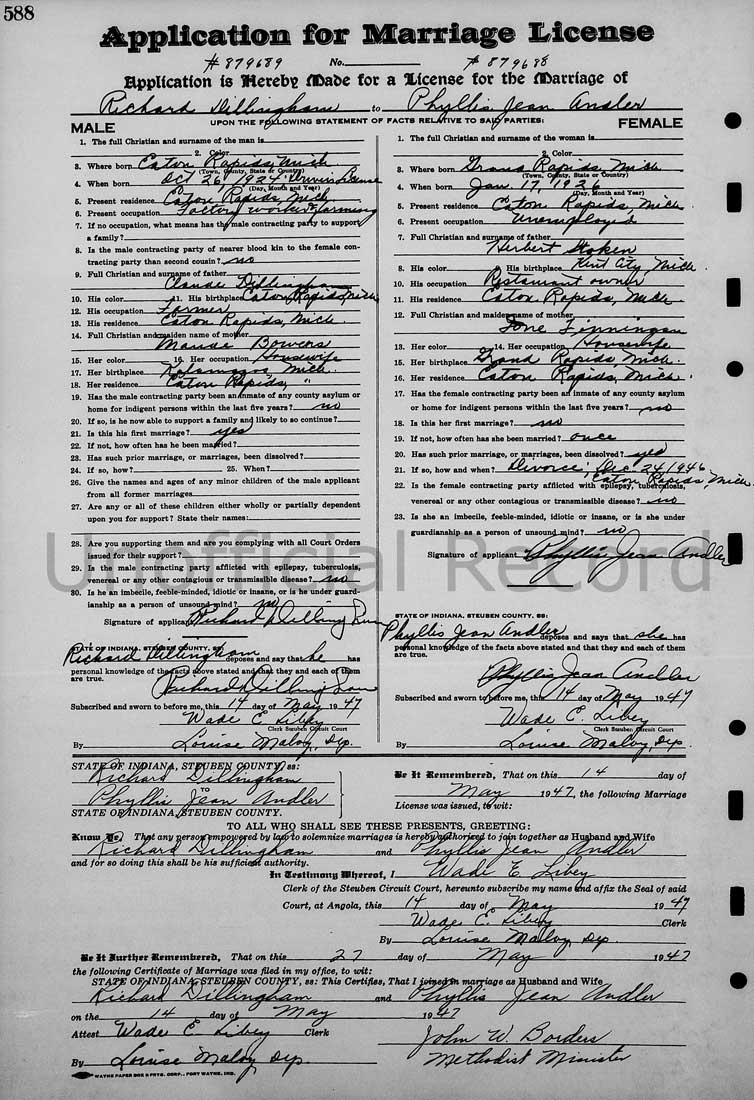 588
Application for Marriage License
#879689 No. #879688
Application is Hereby Made for a License for the Marriage of
Richard Dillingham to Phyllis Jean Andler
UPON THE FOLLOWING STATEMENT OF FACTS RELATIVE TO SAID PARTIES:
MALE
1. The full Christian and surname of the man is
2. Color
3. Where born Eaton Rapids, Mich.
(Town, County, State or Country)
4. When born Oct 26, 1924
(Day, Month and Year)
5. Present residence Eaton Rapids, Mich
6. Present occupation Factory worker & farming
7. If no occupation, what means has the male contracting party to support
a family?
8. Is the male contracting party of nearer blood kin to the female con-
tracting party than second cousin? no
9. Full Christian and surname of father
Claude Dillingham
10. His color 11. His birthplace Eaton Rapids, Mich
12. His occupation Farmer
13. His residence Eaton Rapids, Mich
14. Full Christian and maiden name of mother
Maude Bowers
15. Her color 16. Her occupation Housewife
17. Her birthplace Kalamazoo, Mich.
18. Her residence Eaton Rapids, "
19. Has the male contracting party been an inmate of any county asylum or
home for indigent persons within the last five years? no
20. If so, is he now able to support a family and likely to so continue?
21. Is this his first marriage? yes
22. If not, how often has he been married?
23. Has such prior marriage, or marriages, been dissolved?
24. If so, how? 25. When?
26. Give the names and ages of any minor children of the male applicant
from all former marriages
27. Are any or all of these children either wholly or partially dependent
upon you for support? State their names:
28. Are you supporting them and are you complying with all Court Orders
issued for their support?
29. Is the male contracting party afflicted with epilepsy, tuberculosis,
venereal or any other contagious or transmissible disease? no
30. Is he an imbecile, feeble-minded, idiotic or insane, or is he under guard-
ianship as a person of unsound mind? no
Signature of applicant Richard Dillingham
STATE OF INDIANA, STEUBEN COUNTY, SS:
Richard Dillingham deposes and say that he has
personal knowledge of the facts above stated and that they and each of them
are true.
Richard Dillingham
Subscribed and sworn to before me, this 14 day of May 1947
Wade E. Libey
Clerk Steuben Circuit Court
By Louise Maloy, Dep.
FEMALE
1. The full Christian and surname of the woman is
2. Color
3. Where born Grand Rapids, Mich
(Town, County, State or Country)
4. When born Jan. 17, 1926
(Day, Month and Year)
5. Present residence Eaton Rapids, Mich.
6. Present occupation Unemployed
7. Full Christian and surname of father
Herbert
8. His color 9. His birthplace Kent City, Mich
10. His occupation Restaurant owner
11. His residence Eaton Rapids, Mich.
12. Full Christian and maiden name of mother
13. Her color 14. Her occupation Housewife
15. Her birthplace Grand Rapids, Mich.
16. Her residence Eaton Rapids, Mich.
17. Has the female contracting party been an inmate of any county asylum
or home for indigent persons within the last five years? no
18. Is this her first marriage? no
19. If not, how often has she been married? once
20. Has such prior marriage, or marriages, been dissolved? yes
21. If so, how and when? Divorce, Dec. 24, 1946
Eaton Rapids, Mich.
22. Is the female contracting party afflicted with epilepsy, tuberculosis,
venereal or any other contagious or transmissible disease? no
23. Is she an imbecile, feeble-minded, idiotic or insane, or is she under
guardianship as a person of unsound mind? no
Signature of applicant Phyllis Jean Andler
STATE OF INDIANA, STEUBEN COUNTY, SS:
Phyllis Jean Andler deposes and says that she has
personal knowledge of the facts above stated and that they and each of them
are true.
Phyllis Jean Andler
Subscribed and sworn to before me, this 14 day of May 1947
Wade E. Libey
Clerk Steuben Circuit Court
By Louise Maloy, Dep.
Unofficial Record
STATE OF INDIANA, STEUBEN COUNTY, ss:
Richard Dillingham
TO
Phyllis Jean Andler
STATE OF INDIANA, STEUBEN COUNTY.
Be It Remembered, That on this 14 day of
May 1947, the following Marriage
License was issued, to wit:
TO ALL WHO SHALL SEE THESE PRESENTS, GREETING:
Know Ye, That any person empowered by law to solemnize marriages is hereby authorized to join together as Husband and Wife
Richard Dillingham and Phyllis Jean Andler
and for so doing this shall be his sufficient authority.
In Testimony Whereof, I Wade E. Libey
Clerk of the Steuben Circuit Court, hereunto subscribe my name and affix the Seal of said
Court, at Angola, this 14 day of May 1947
Wade E. Libey Clerk
By Louise Maloy Dep.
Be It Further Remembered, That on this 27 day of May 1947
the following Certificate of Marriage was filed in my office, to wit:
STATE OF INDIANA, STEUBEN COUNTY, ss: This Certifies, That I joined in marriage as Husband and Wife
Richard Dillingham and Phyllis Jean Andler
on the 14 day of May 1947
Attest Wade E Libey Clerk John W. Borders
By Louise Maloy Dep. Methodist Minister
WAYNE PAPER BOX & PRTG. CORP., FORT WAYNE, IND.